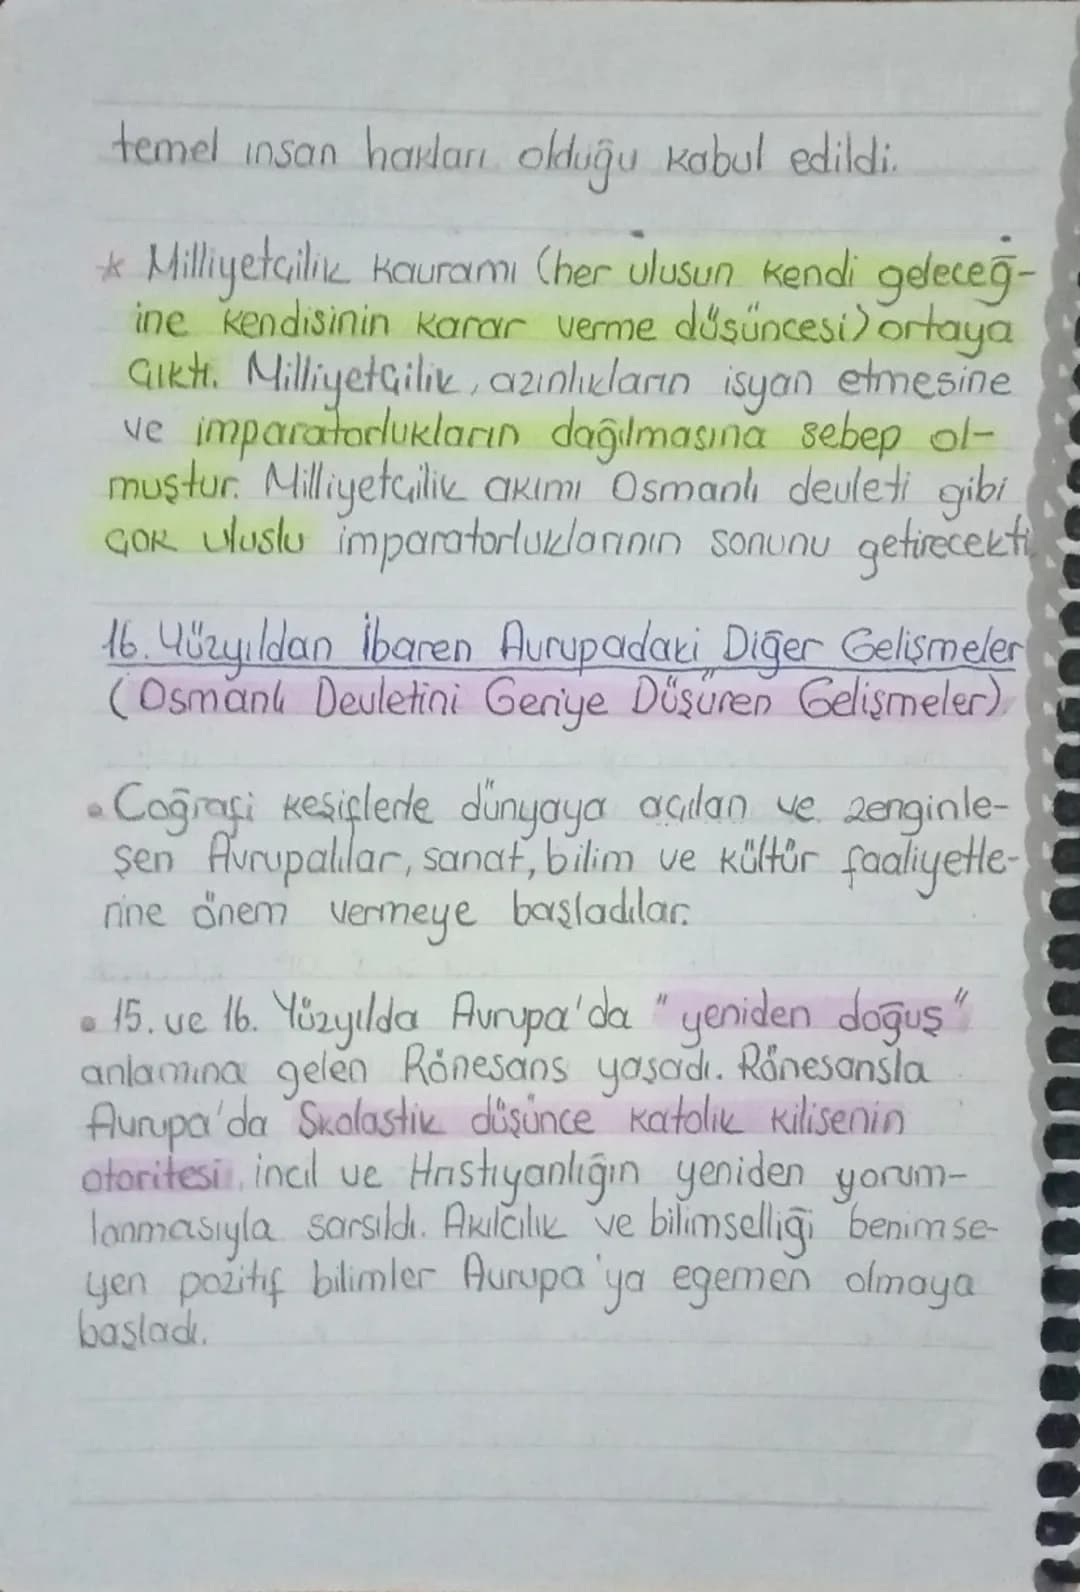 temel insan hakları olduğu kabul edildi.
* Milliyetçilik kavramı (her ulusun kendi geleceğ-
ine kendisinin karar verme düşüncesi) ortaya
çıktı. Milliyetçilik, azınlıkların isyan etmesine
ve imparatorlukların dağılmasına sebep ol-
muştur. Milliyetçilik akımı Osmanlı devleti gibi
çok uluslu imparatorluklarının sonunu getirecekti.
16. Yüzyıldan İbaren Avrupadaki Diğer Gelişmeler
(Osmanlı Devletini Geriye Düşüren Gelişmeler)
• Coğrafi keşiflerle dünyaya açılan ve zenginle-
şen Avrupalılar, sanat, bilim ve kültür faaliyetle-
rine önem vermeye başladılar.
• 15. ve 16. Yüzyılda Avrupa'da "yeniden doğuş"
anlamına gelen Rönesans yaşadı. Rönesansla
Avrupa'da Skolastik düşünce katolik kilisenin
otoritesi, incil ve Hristiyanlığın yeniden yorum-
lanmasıyla sarsıldı. Akılcılık ve bilimselliği benimse-
yen pozitif bilimler Avrupa'ya egemen olmaya
başladı.